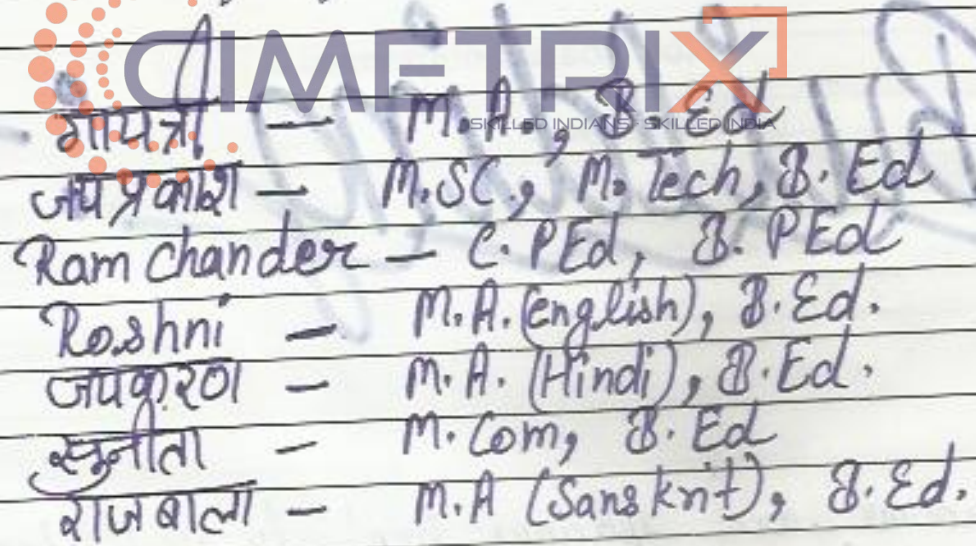 CIMETRIX
SKILLED INDIANS - SKILLED INDIA
गायत्री — M.A., B.Ed
जयप्रकाश — M.SC., M.Tech, B.Ed
Ram Chander — C.PEd, B.PEd
Roshni — M.A.(English), B.Ed.
जयकरण — M.A. (Hindi), B.Ed.
सुनीता — M.Com, B.Ed
राजबाला — M.A (Sanskrit), B.Ed.